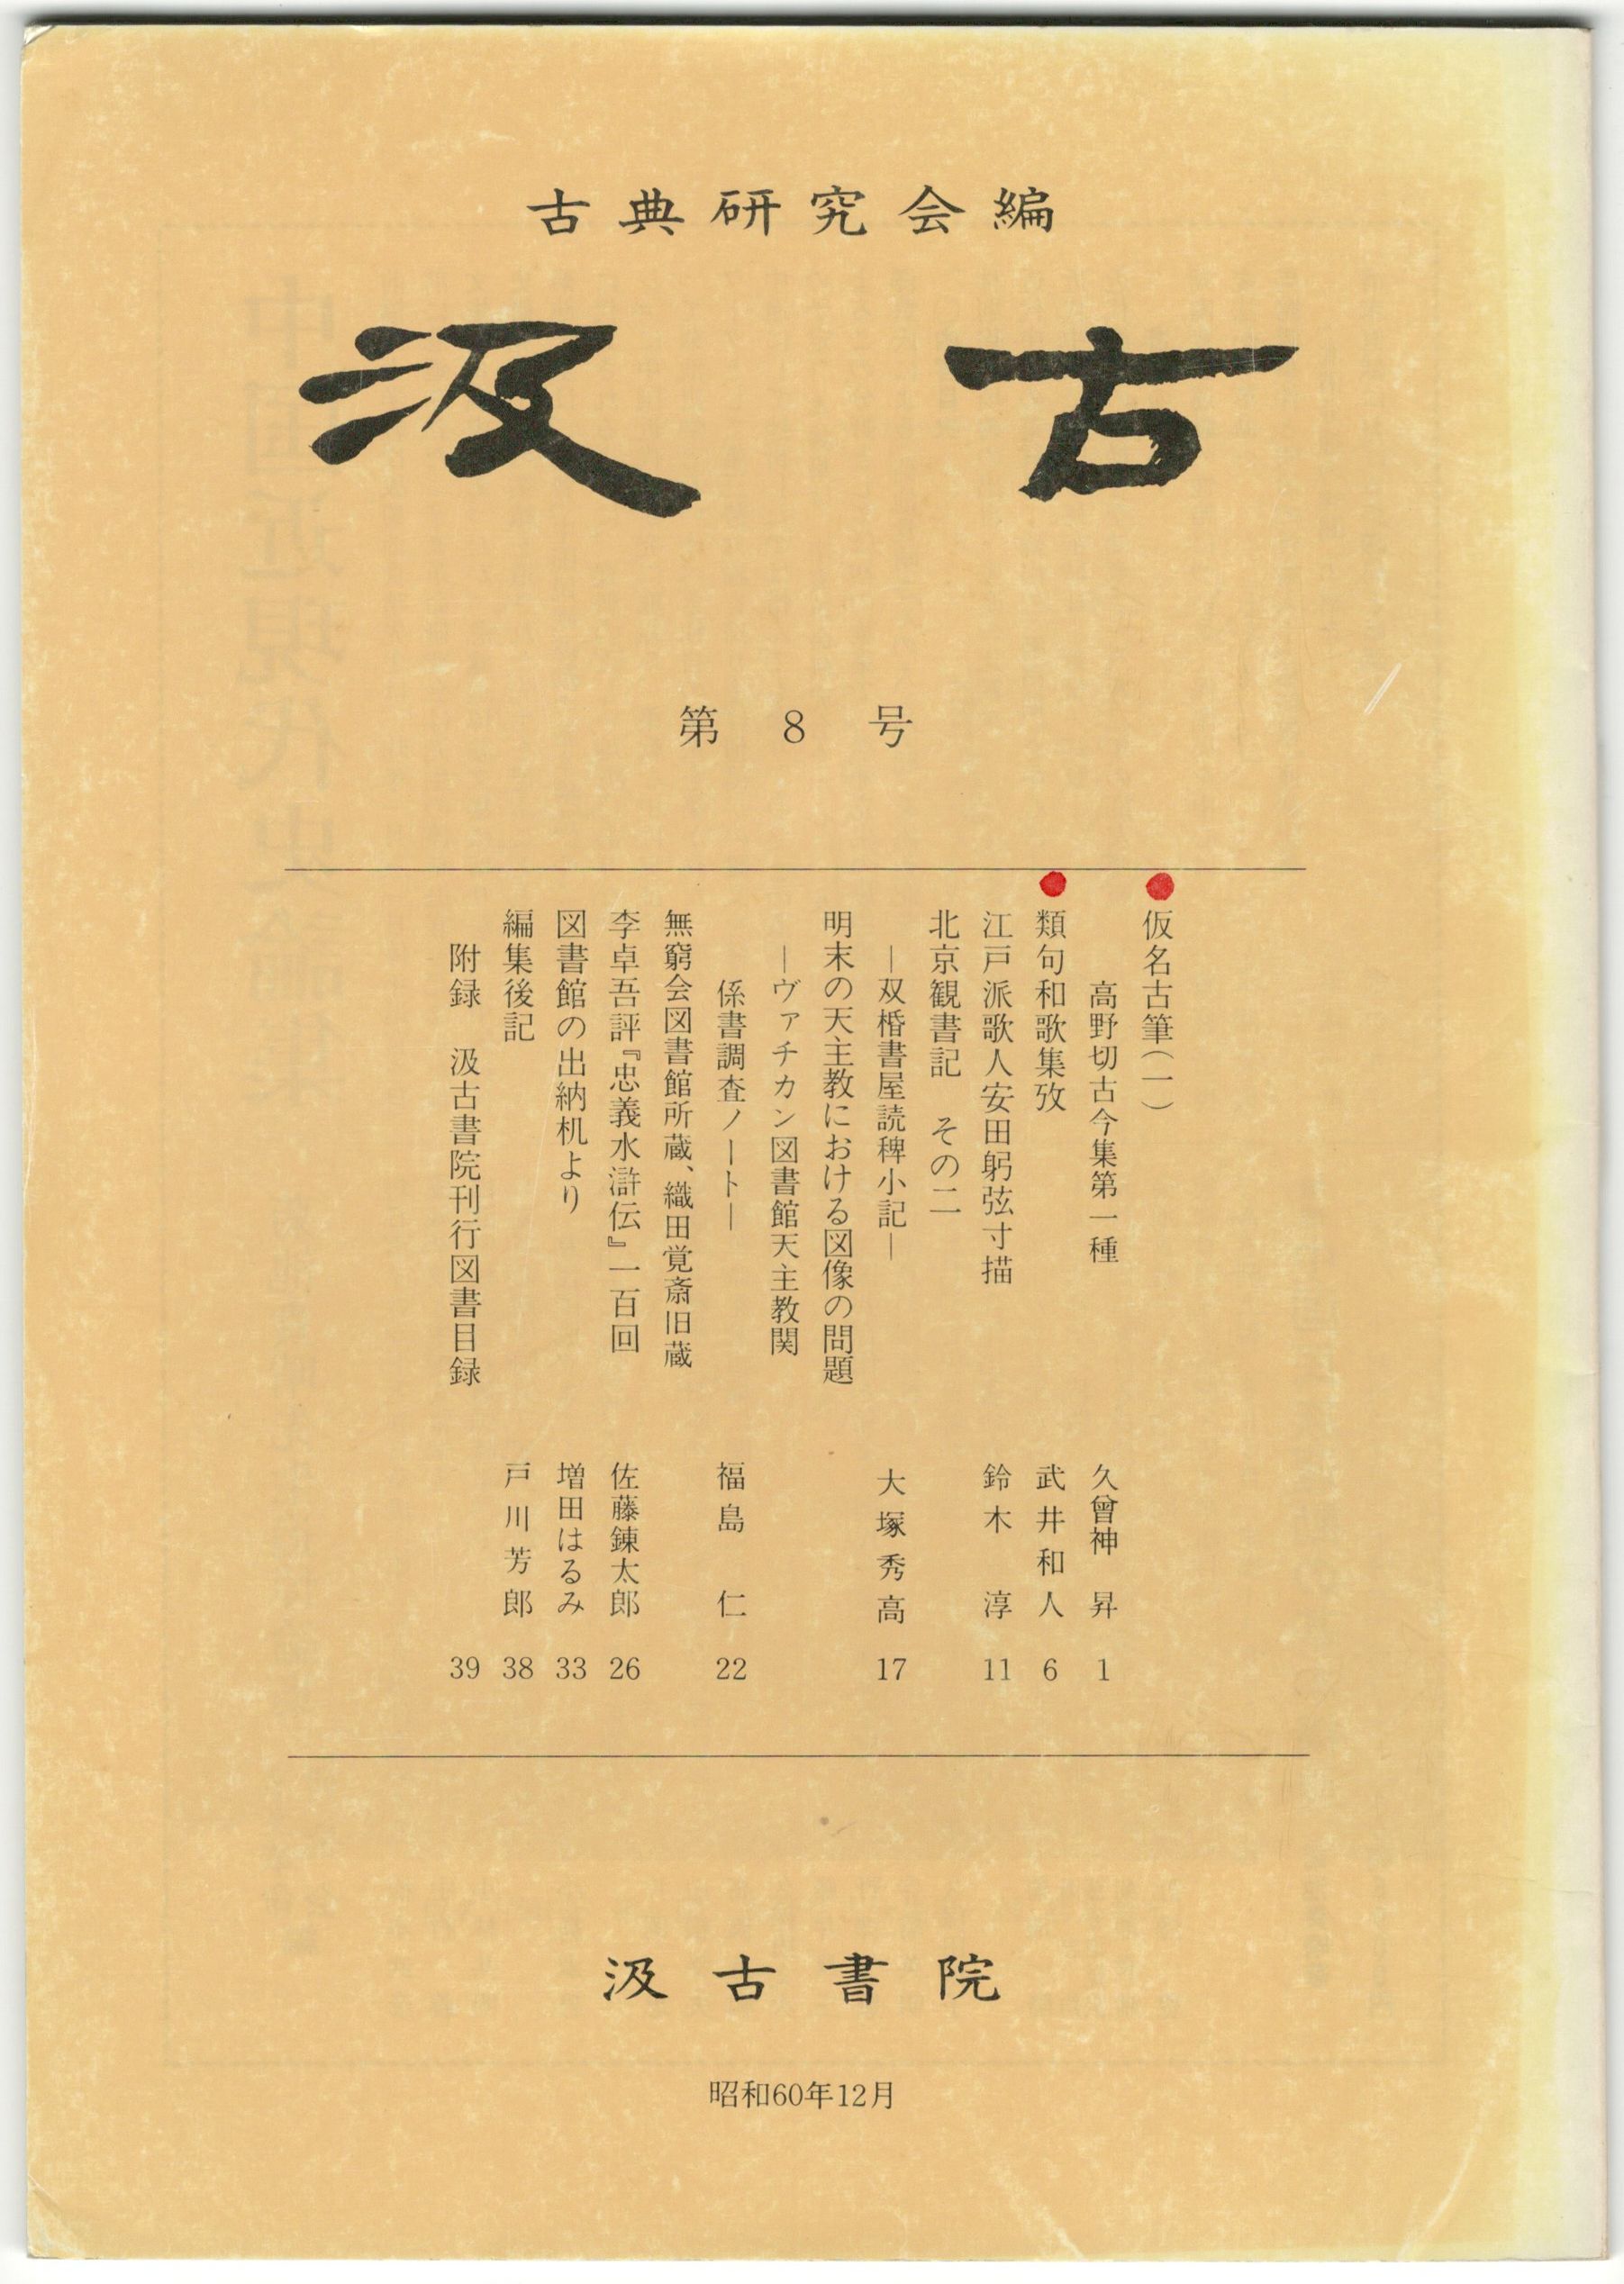 古典研究会編
汲古
第8号
仮名古筆(一)
高野切古今集第一種 久曾神 昇 1
類句和歌集攷 武井和人 6
江戸派歌人安田躬弦寸描 鈴木 淳 11
北京観書記 その二
―双棔書屋読稗小記― 大塚秀高 17
明末の天主教における図像の問題
―ヴァチカン図書館天主教関
係書調査ノート― 福島 仁 22
無窮会図書館所蔵、織田覚斎旧蔵
李卓吾評『忠義水滸伝』一百回 佐藤錬太郎 26
図書館の出納机より 増田はるみ 33
編集後記 戸川芳郎 38
附録 汲古書院刊行図書目録 39
汲古書院
昭和60年12月